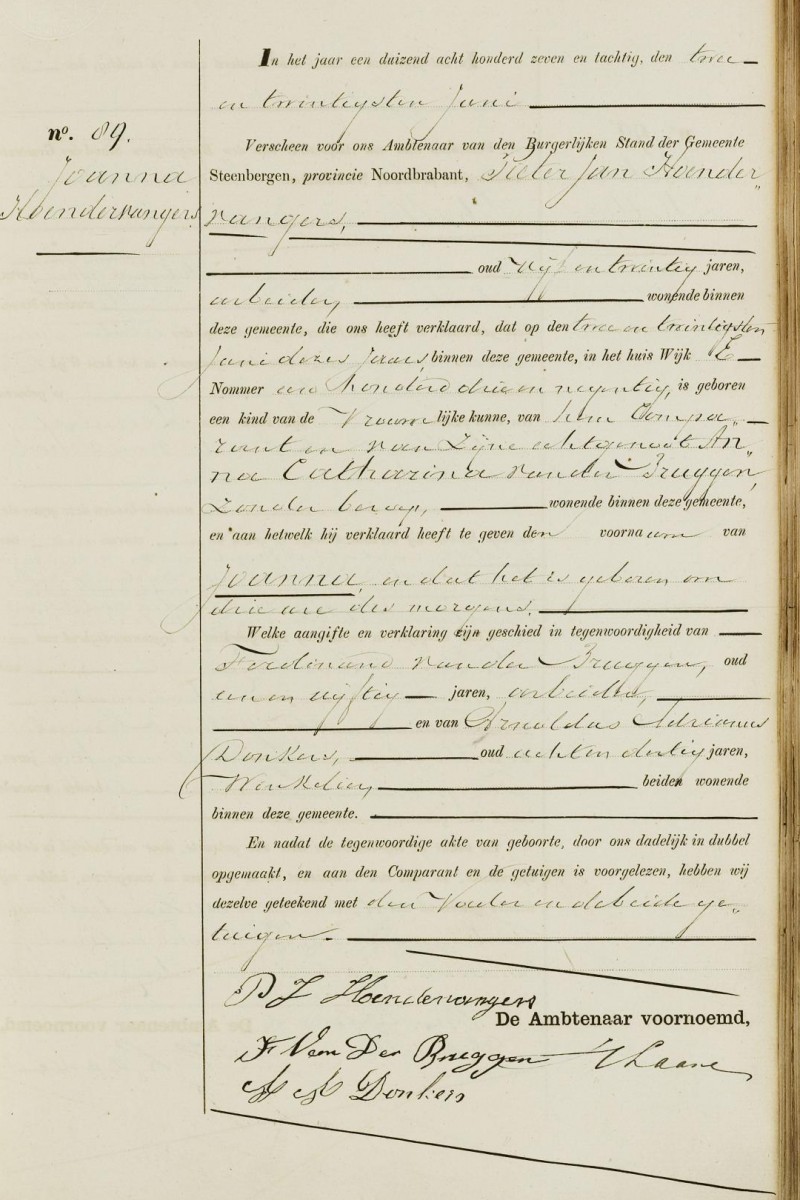 In het jaar een duizend acht honderd zeven en tachtig, den twee
en twintigsten Juni
nº. 89.
Joanna
Hoendervangers
Verscheen voor ons Ambtenaar van den Burgerlijken Stand der Gemeente
Steenbergen, provincie Noordbrabant, Pieter Jan Hoender„
vangers,
oud vijf en twintig jaren,
arbeider, wonende binnen
deze gemeente, die ons heeft verklaard, dat op den twee en twintigsten
Juni dezes Jaars, binnen deze gemeente, in het huis Wijk E
Nommer een honderd drie en negentig, is geboren
een kind van de Vrouwelijke kunne, van hem Compa„
rant en van Zijne echtgenoot An„
na Catharina van der Bruggen,
Zonder beroep, wonende binnen deze gemeente,
en aan hetwelk hij verklaard heeft te geven den voornaam van
Joanna, en dat het is geboren om
drie ure des morgens.
Welke aangifte en verklaring zijn geschied in tegenwoordigheid van
Ferdinand van der Bruggen, oud
een en vijftig jaren, arbeider,
en van Arnoldus Adrianus
Donkers, oud acht en dertig jaren,
Winkelier, beiden wonende
binnen deze gemeente.
En nadat de tegenwoordige akte van geboorte, door ons dadelijk in dubbel
opgemaakt, en aan den Comparant en de getuigen is voorgelezen, hebben wij
dezelve geteekend met den Vader en de beide ge„
tuigen.
P J Hoendervangers
De Ambtenaar voornoemd,
F Van Der Bruggen
Donkers